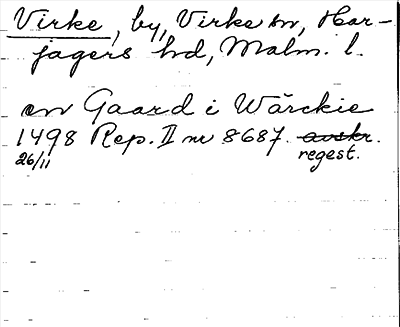 Virke, by, Virke sn, Har-
jagers hd, Malm. l.
en Gaard i Wärckie
1498 Rep. II nr 8687. avskr.
26/11 regest.